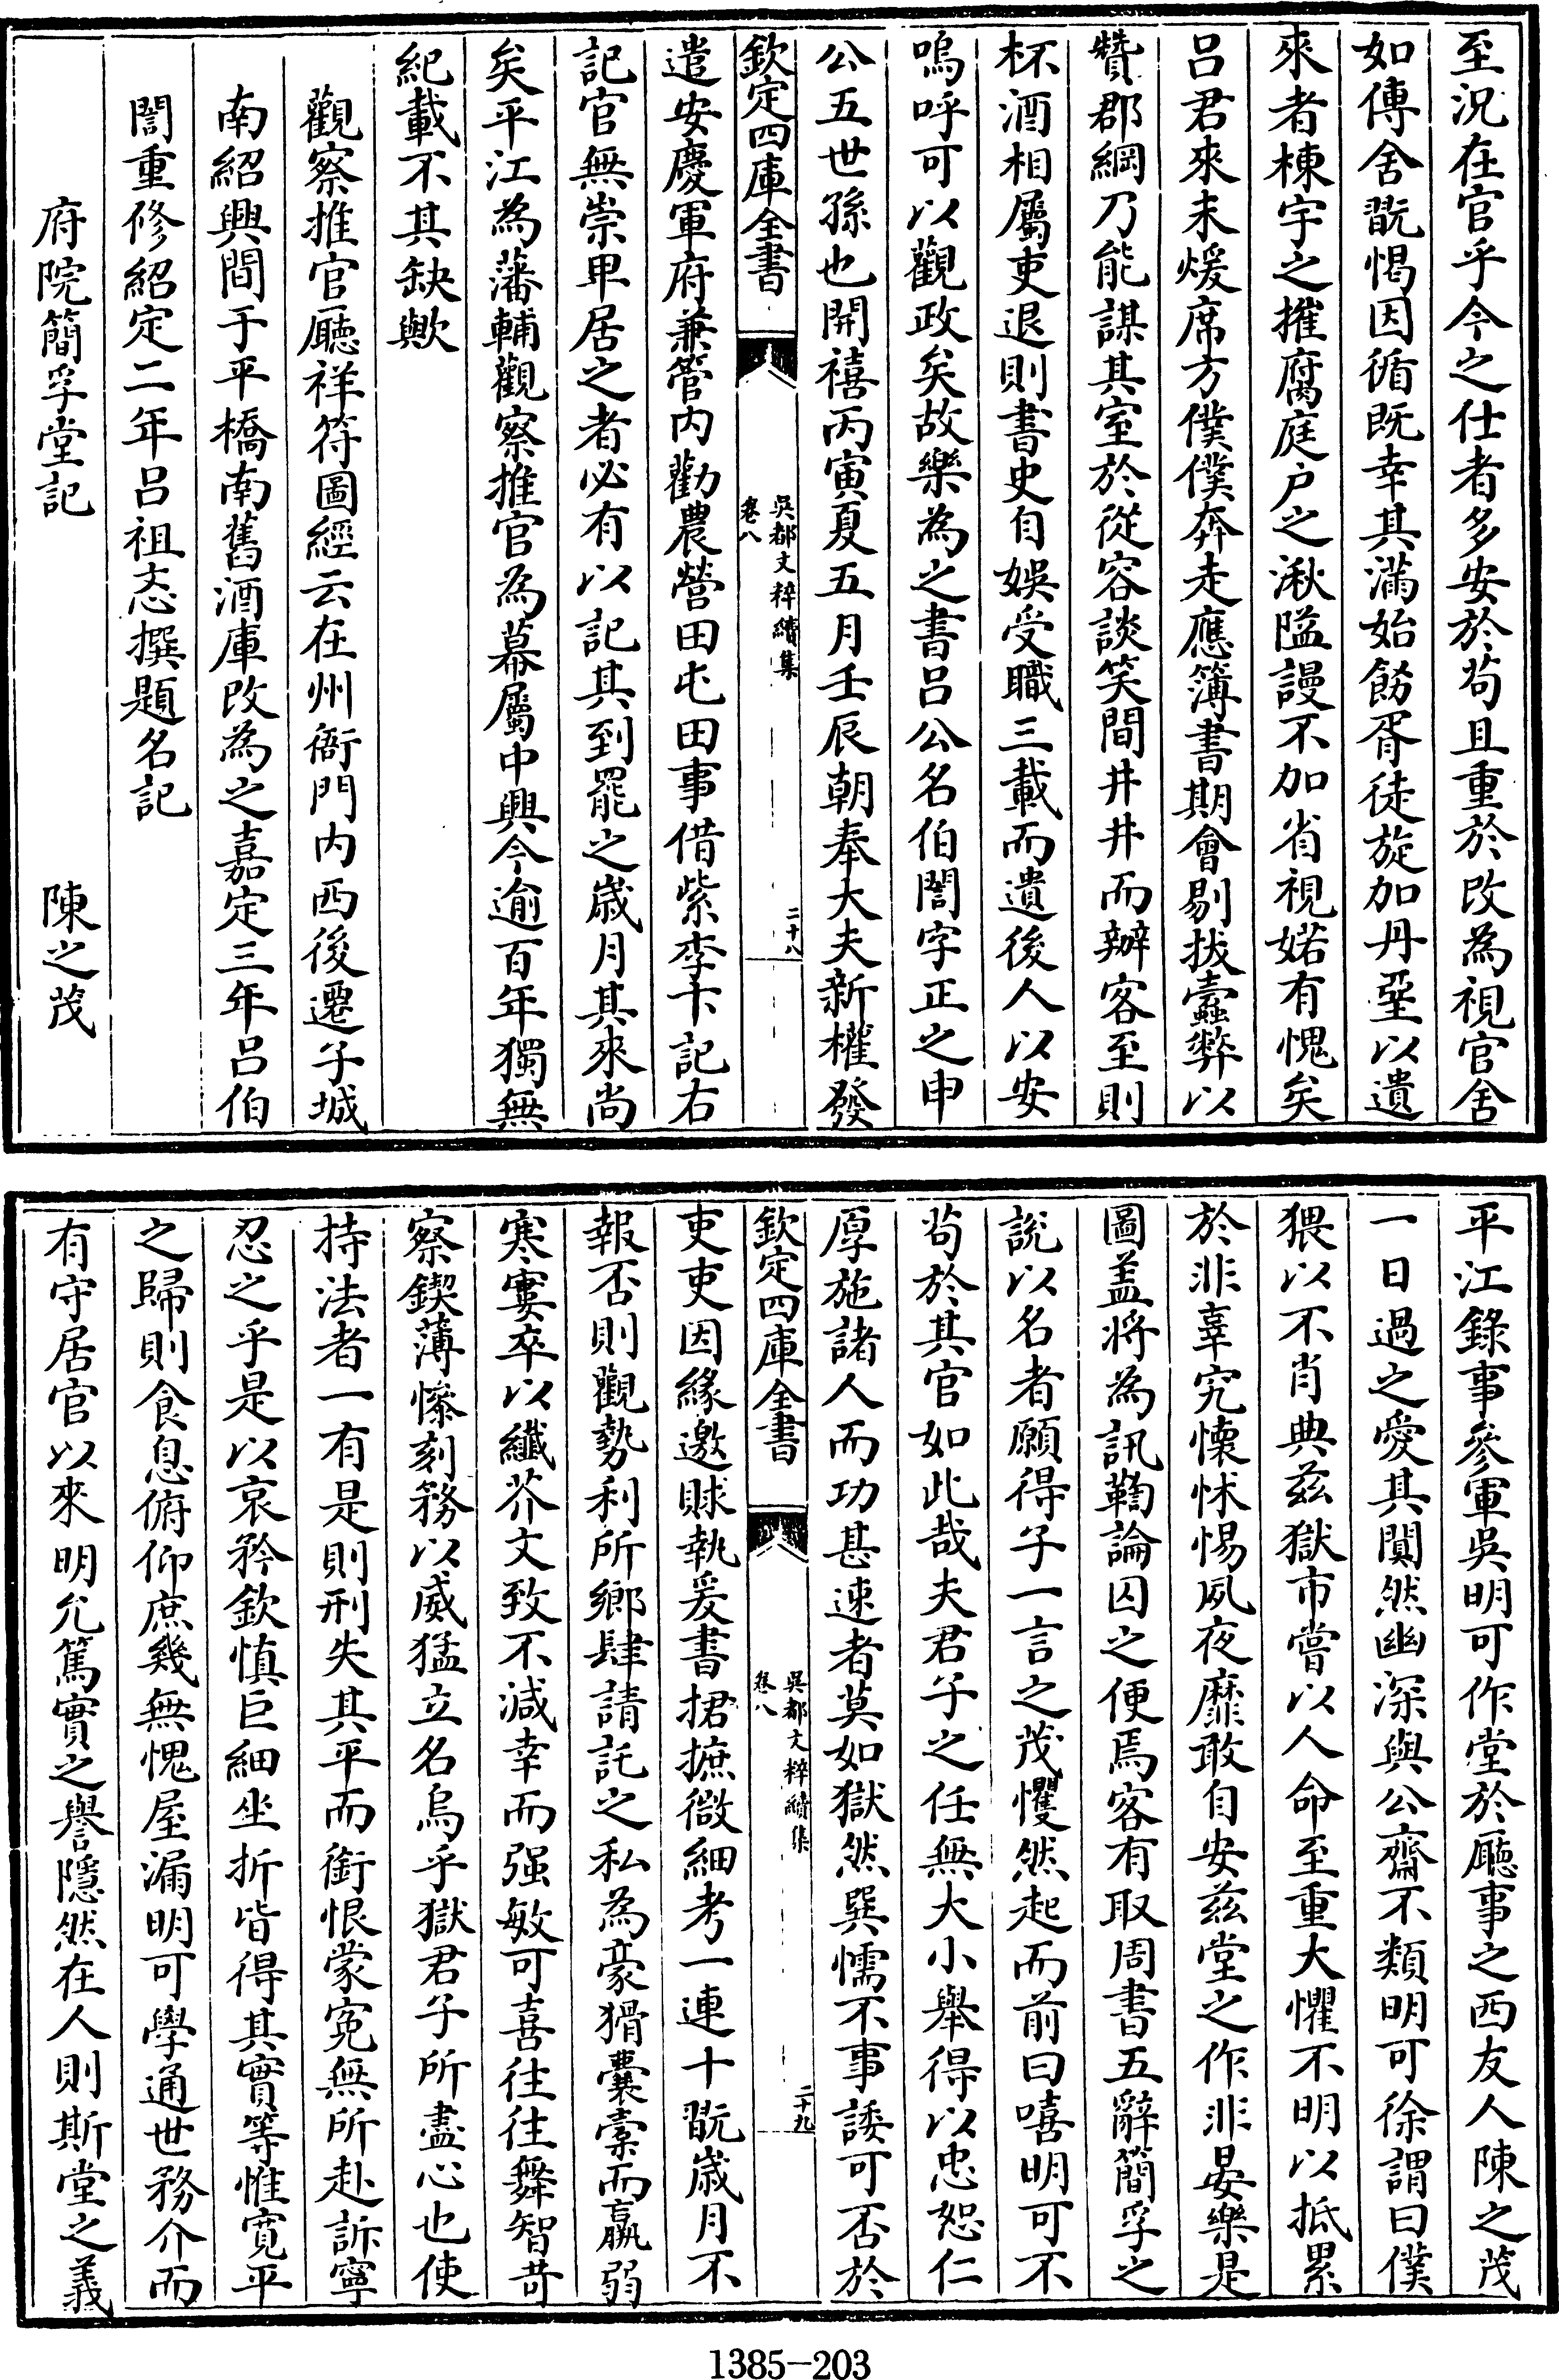 至況在官乎今之仕者多安於苟且重於改為視官舍
如傳舍翫愒因循既幸其滿始飭胥徒旋加丹堊以遺
來者棟宇之摧腐庭户之湫隘謾不加省視婼有愧矣
吕君來未煖席方僕僕奔走應簿書期會剔拔蠧弊以
贊郡綱乃能謀其室於從容談笑間井井而辦客至則
杯酒相屬吏退則書史自娱受職三載而遺後人以安
嗚呼可以觀政矣故樂為之書吕公名伯誾字正之申
公五世孫也開禧丙寅夏五月壬辰朝奉大夫新權發
欽定四庫全書
吳都文粹續集
卷八
二十八
遣安慶軍府兼管内勸農營田屯田事借紫李卞記右
記官無崇卑居之者必有以記其到罷之歲月其來尚
矣平江為藩輔觀察推官為幕屬中興今逾百年獨無
紀載不其缺歟
觀察推官廳祥符圖經云在州衙門内西後遷子城
南紹興間于平橋南舊酒庫改為之嘉定三年吕伯
誾重修紹定二年吕祖忞撰題名記
府院簡孚堂記 陳之茂
平江錄事參軍吳明可作堂於廳事之西友人陳之茂
一日過之愛其闃然幽深與公齋不類明可徐謂曰僕
猥以不肖典兹獄市嘗以人命至重大懼不明以抵累
於非辜究懐怵惕夙夜靡敢自安兹堂之作非晏樂是
圖盖將為訊鞫論囚之便焉客有取周書五辭簡孚之
説以名者願得子一言之茂懼然起而前曰嘻明可不
苟於其官如此哉夫君子之任無大小舉得以忠恕仁
厚施諸人而功甚速者莫如獄然巽懦不事諉可否於
欽定四庫全書
吳都文粹續集
卷八
二十九
吏吏因緣邀賕執爰書捃摭微細考一連十翫歲月不
報否則觀勢利所鄉肆請託之私為豪猾囊橐而羸弱
寒窶卒以纖芥文致不減幸而强敏可喜往往舞智苛
察鍥薄慘刻務以威猛立名烏乎獄君子所盡心也使
持法者一有是則刑失其平而銜恨蒙寃無所赴訴寧
忍之乎是以哀矜欽慎巨細坐折皆得其實等惟寛平
之歸則食息俯仰庶幾無愧屋漏明可學通世務介而
有守居官以來明允篤實之譽隱然在人則斯堂之義
1385-203